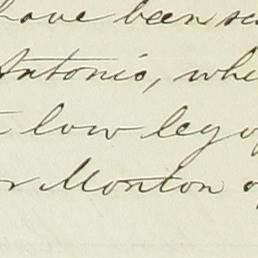 have been
Antonio, whe
low leg
Morton